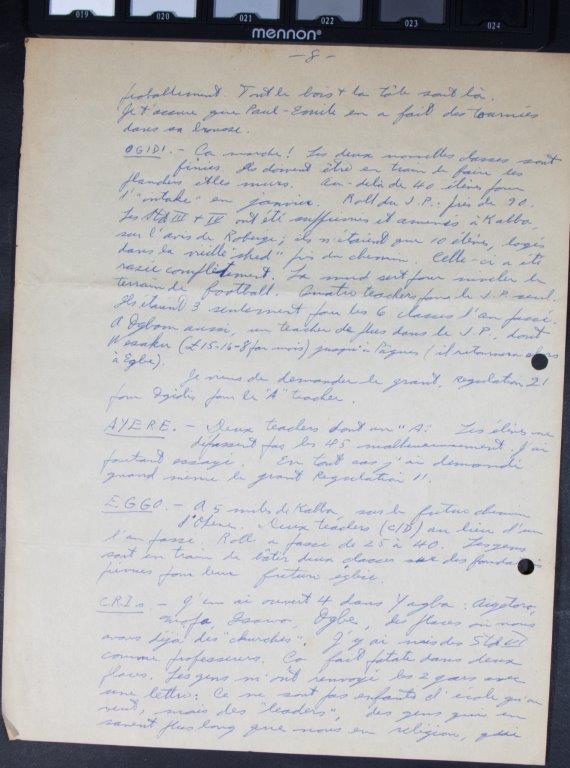 019 020 021 022 023 024
mennon®
- 8 -
probablement. Tout le bois & la tôle sont là.
Je t'assure que Paul-Emile en a fait des tournées
dans sa brousse.
OGIDI. - Ca marche! Les deux nouvelles classes sont
finies. Ils doivent être en train de faire les
planchers et les murs. Au-delà de 40 élèves pour
l'"intake" en janvier. Roll du J.P.: près de 90.
Les Std III & IV ont été supprimés et amenés à Kabba,
sur l'avis de Roberge; ils n'étaient que 10 élèves, logés
dans la vieille "shed" près du chemin. Celle-ci a été
rasée complètement. La mud sert pour niveler le
terrain de football. Quatre teachers pour le J.P. seul.
Ils étaient 3 seulement pour les 6 classes l'an passé.
A Ogbom aussi, un teacher de plus dans le J.P., dont
(£15-16-8 par mois) jusqu'à Pâques (il retournera alors
à Egbe).
Je viens de demander le grant, Regulation 21
pour Ogidi, pour le "A" teacher.
AYERE. - Deux teachers dont un "A". Les élèves ne
dépassent pas les 45 malheureusement. J'ai
pourtant essayé. En tout cas j'ai demandé
quand même le grant Regulation 11.
EGGO. - A 5 miles de Kabba, sur le futur chemin
d'Okene. Deux teachers (C/D) au lieu d'un
l'an passé. Roll a passé de 25 à 40. Les gens
sont en train de bâtir deux classes sur des fondations
pour leur future église.
C.R.I.s. - J'en ai ouvert 4 dans Yagba: Aiyetoro,
Ogbe, des places où nous
avons déjà des "churches". J'y ai mis des Std VI
comme professeurs. Ca fait patate dans deux
places. Les gens m'ont renvoyé les 2 gars avec
une lettre: Ce ne sont pas enfants d'école qu'on
veut, mais des "leaders", des gens qui en
savent plus long que nous en religion, qui